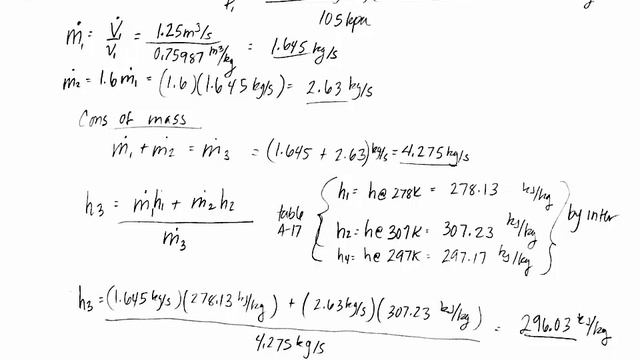 105 kpa
ṁ₁ = V̇₁/v₁ = 1.25 m³/s / 0.75987 m³/kg = 1.645 kg/s
ṁ₂ = 1.6 ṁ₁ = (1.6)(1.645 kg/s) = 2.63 kg/s
Cons of mass
ṁ₁ + ṁ₂ = ṁ₃ = (1.645 + 2.63) kg/s = 4.275 kg/s
h₃ = ṁ₁h₁ + ṁ₂h₂ / ṁ₃
table A-17
h₁ = h@278K = 278.13 kJ/kg
h₂ = h@307K = 307.23 kJ/kg
h₄ = h@297K = 297.17 kJ/kg
by inter
h₃ = (1.645 kg/s)(278.13 kJ/kg) + (2.63 kg/s)(307.23 kJ/kg) / 4.275 kg/s = 296.03 kJ/kg